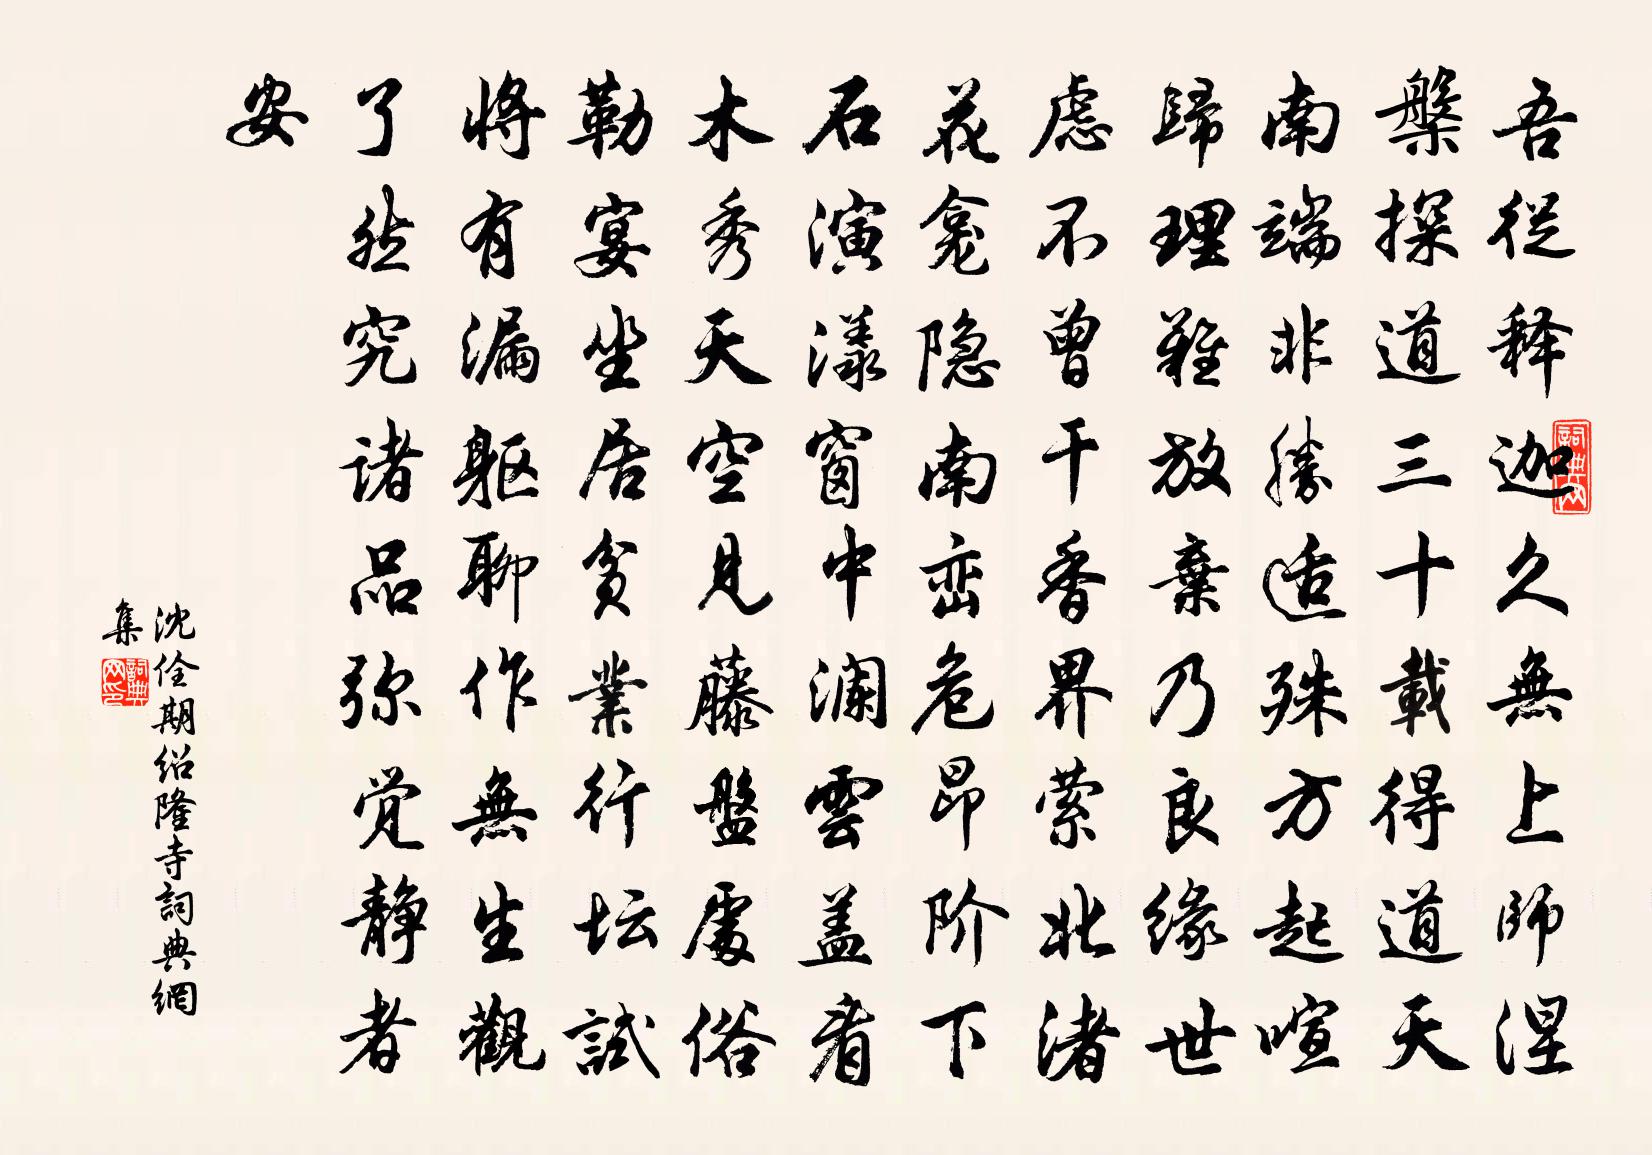 吾從释迦久無上師涅
槃探道三十載得道天
南端非勝适殊方起喧
歸理難放棄乃良緣世
虑不曾干香界萦北渚
花龛隐南峦危昂阶下
石演漾窗中澜雲盖看
木秀天空見藤盤處俗
勒宴坐居贫業行坛試
將有漏軀聊作無生觀
了然究诸品弥觉静者
安
沈佺期绍隆寺詞典網
集
詞典网
詞典网印